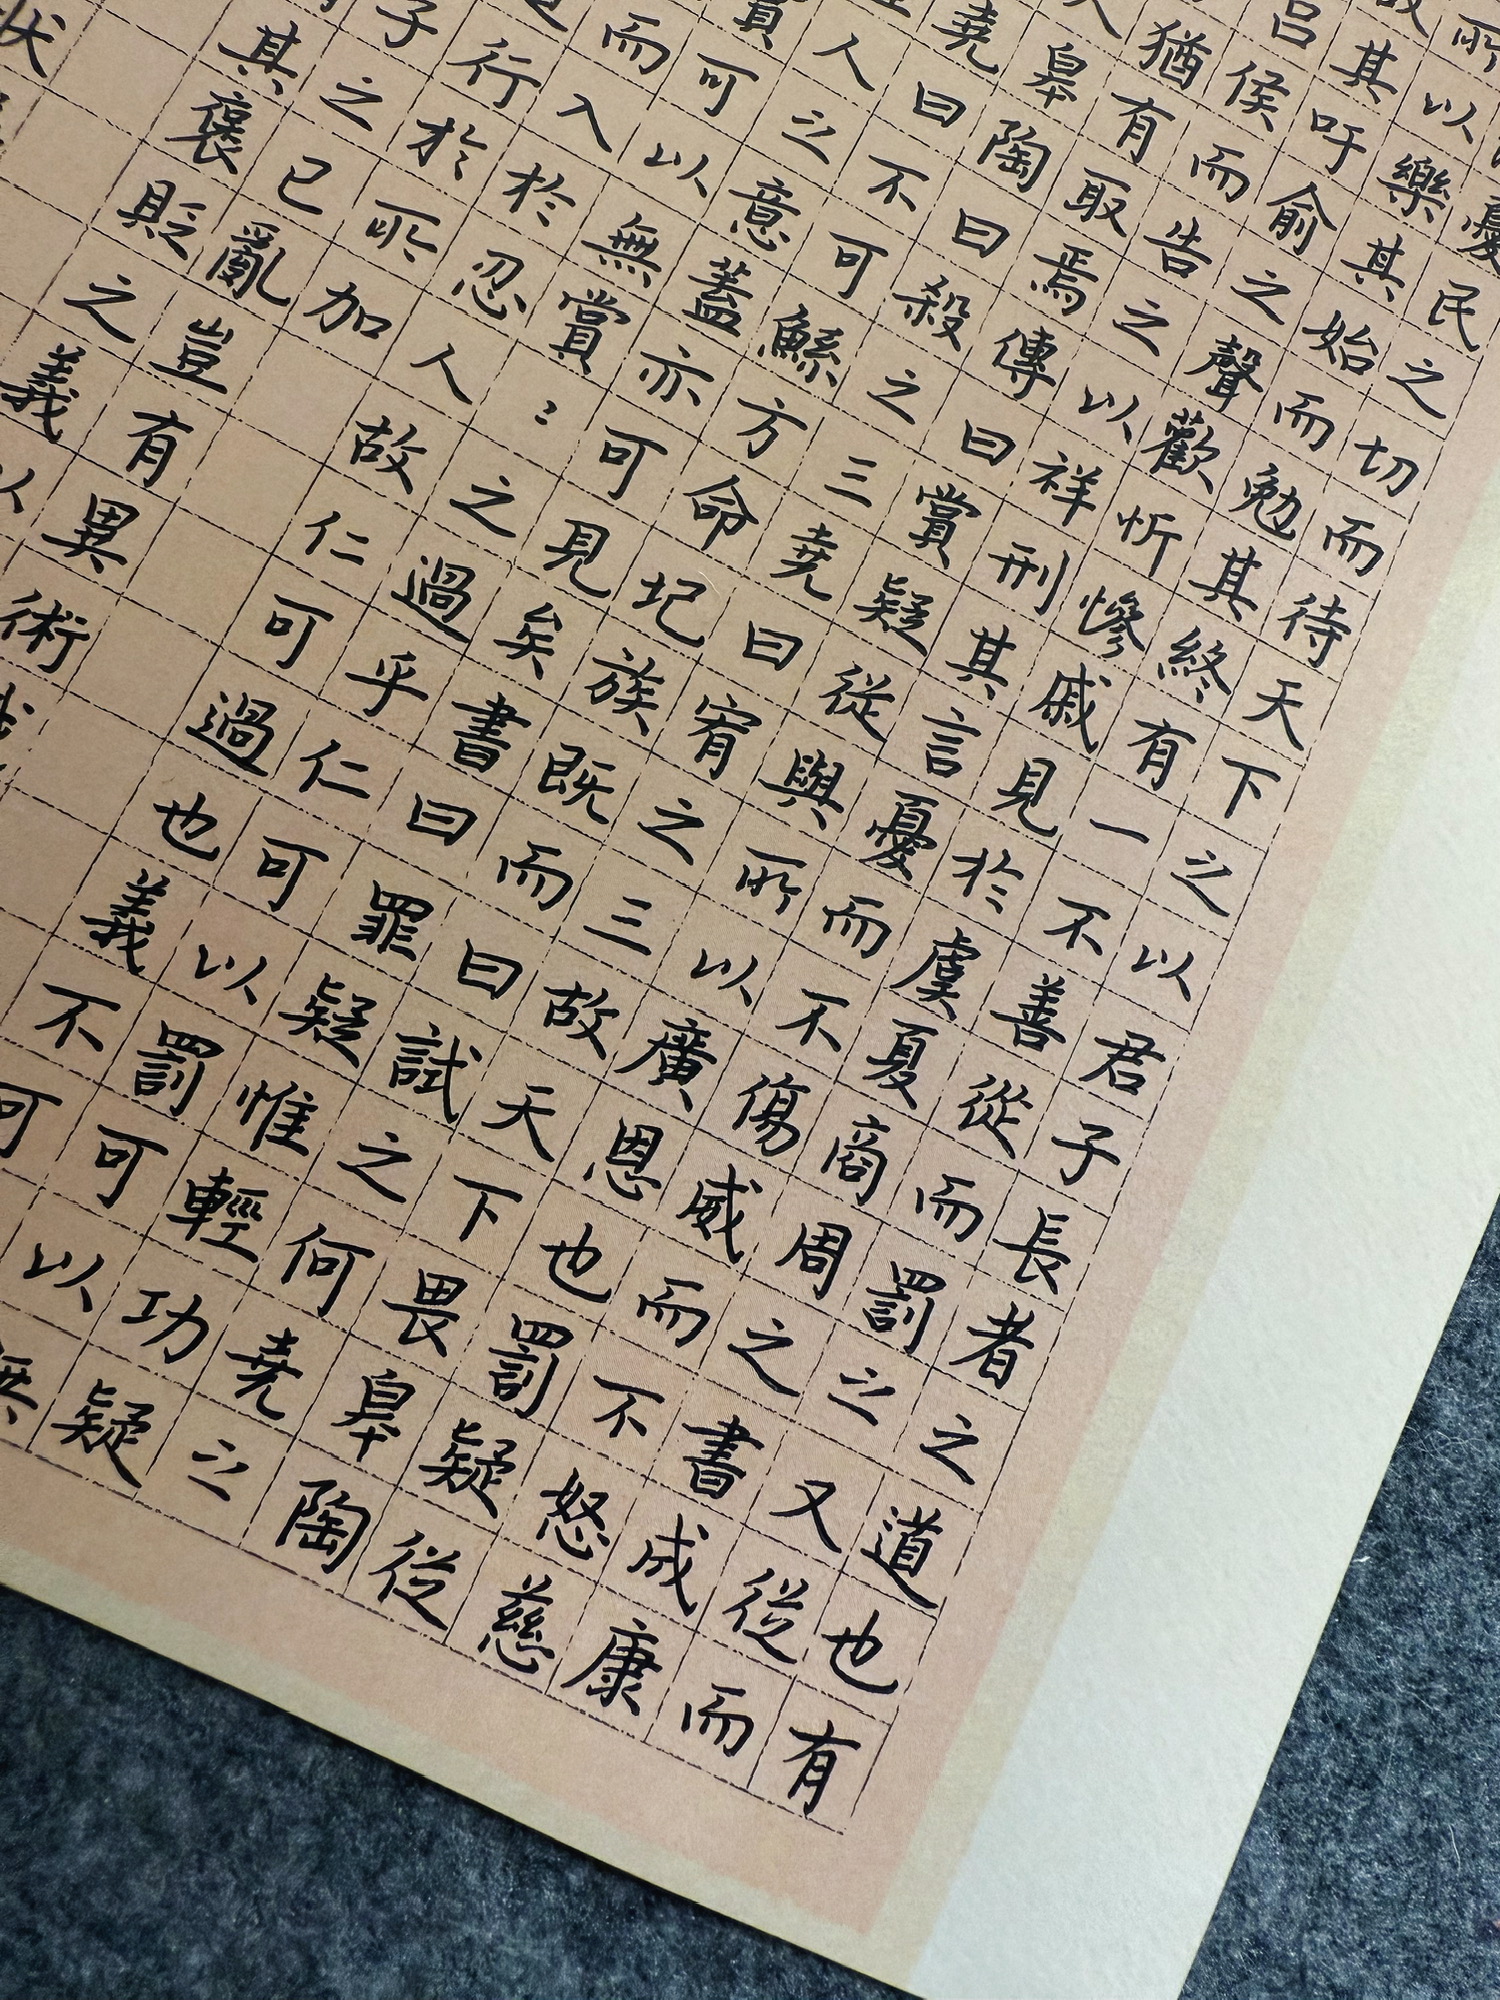 憂民之切而待天下之以君子長者之道也有
所以樂其始而勉其終有一不善從而罰之又從而
故其吁俞之聲歡忻慘戚見於虞夏商周之書成康
呂侯而告之以祥刑其言憂而不傷威而不怒慈
猶有取焉傳曰賞疑從與所以廣恩也罰疑從
人皋陶曰殺之三堯曰宥之三故天下畏皋陶
堯曰不可鯀方命圮族既而曰試之何堯之
人之意蓋亦可見矣書曰罪疑惟輕功疑
賞可以無賞:之過乎仁可以罰可以無
而入於忍人故仁可過也義不可
道行於所加
子之已亂豈有異術哉
其褒貶之義以